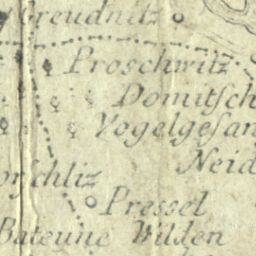 Greudnitz
Proschwitz
Domitſch
Vogelgeſan
Neid
orſchliz
Pressel
Wilden